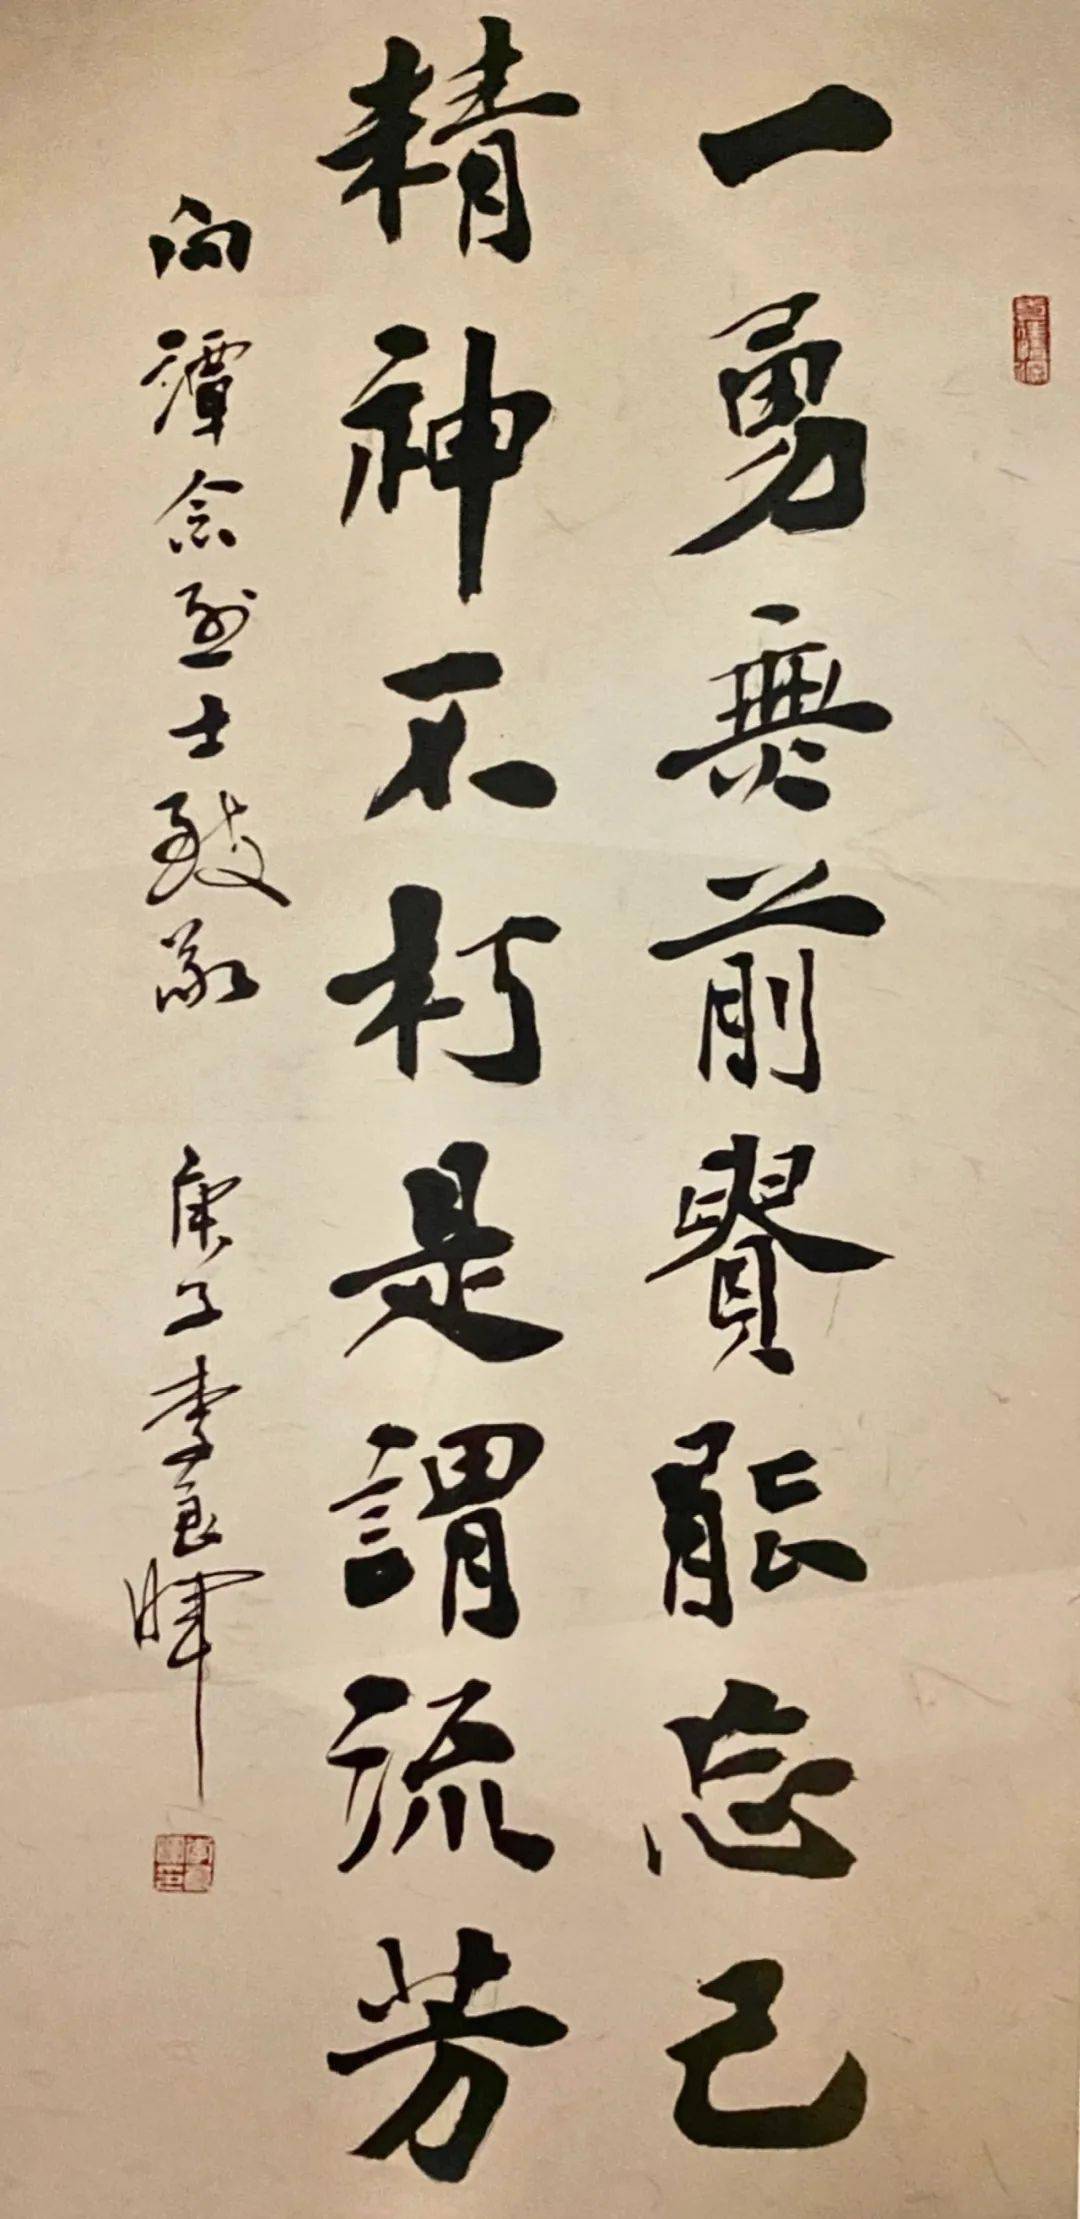 一勇無前賢能忘己
精神不朽是謂流芳
向潭念烈士致敬 庚子李良暉